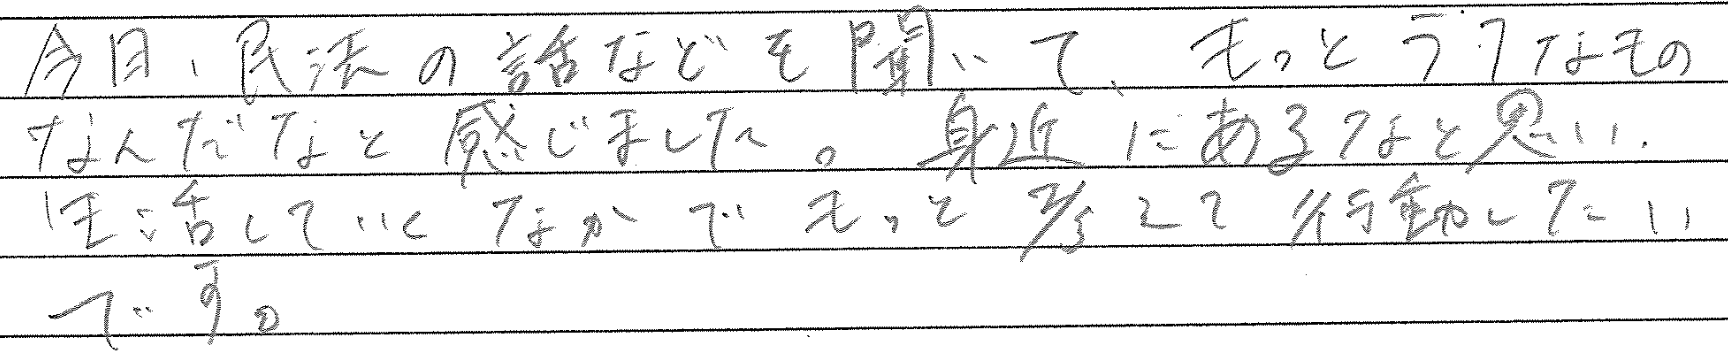 今日、民法の話などを聞いて、もっとラフなもの
なんだなと感じました。身近にあるなと思い、
生活していくなかでもっと考えて行動したい
です。